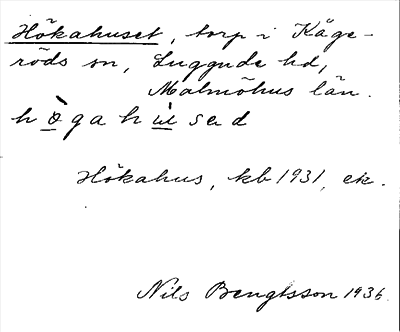 Hökahuset, torp i Käge-
röds sn, Luggude hd,
Malmöhus län.
högahusad
Hökahus, kb 1931, ek.
Nils Bengtsson 1936.